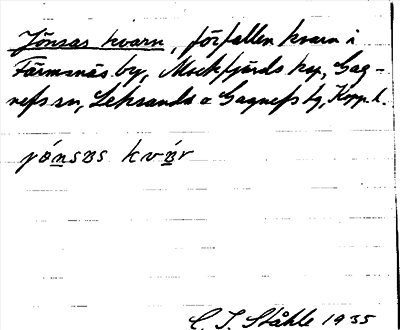 Jönsas kvarn, förfallen kvarn i
Färmsnäs by, Mockfjärds kap, Gag-
nefs sn, Leksands o Gagnefs tg, Kopp. l.
jö́nsas kvá̱r
C. I. Ståhle 1935